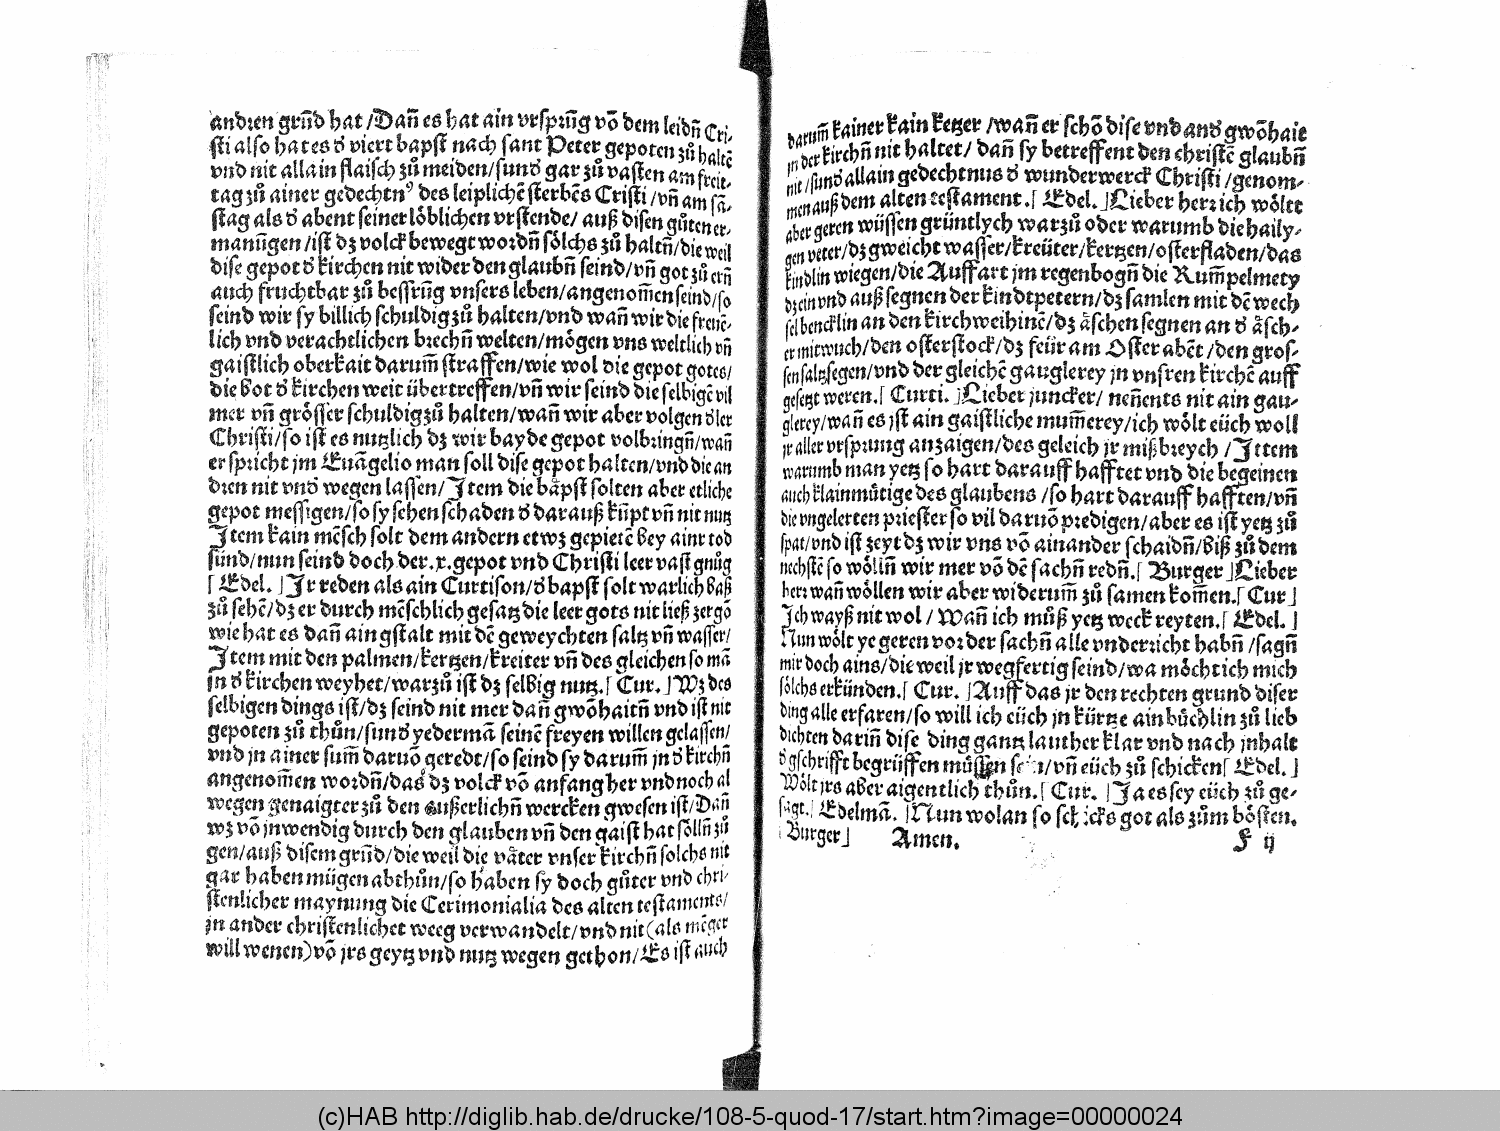 andꝛen grūd hat /Dañ es hat ain vrspꝛūg võ dem leidñ Cri-
sti also hat es d̊ viert bapst nach sant Peter gepoten zů haltē
vnd nit allain flaisch zů meiden/sund̊ gar zů vasten am freit-
tag zů ainer gedechtnꝰ des leiplichē sterbēs Cristi /vñ am sā-
stag als d̊ abent seiner löblichen vrstende/ auß disen gůten er-
manūgen /ist dz volck bewegt woꝛdñ sölchs zů haltñ/die weil
dise gepot d̊ kirchen nit wider den glaubñ seind/vñ got zů erñ
auch fruchtbar zů bessrūg vnsers leben/angenom̄en seind/so
seind wir sy billich schuldig zů halten/vnd wañ wir die freuē-
lich vnd verachtlichen bꝛechñ welten/mögen vns weltlich vñ
gaistlich oberkait darum̄ straffen/wie wol die gepot gotes/
die bot d̊ kirchen weit übertreffen/vñ wir seind die selbigē vil
mer vñ grösser schuldig zů halten/wañ wir aber volgen d̊ ler
Christi/so ist es nutzlich dz wir bayde gepot volbꝛingñ/wañ
er spꝛicht jm Euāgelio man soll dise gepot halten/vnd die an
dꝛen nit vnd̊ wegen lassen/ Jtem die båpst solten aber etliche
gepot messigen/so sy sehen schaden d̊ darauß kūpt vñ nit nutz
Jtem kain mēsch solt dem andern etwz gepietē bey ainr tod
sünd/nun seind doch der.x.gepot vnd Christi leer vast gnůg
[ Edel. ]Jr reden als ain Curtison/d̊ bapst solt warlich baß
zů sehē/dz er durch mēschlich gesatz die leer gots nit ließ zergō
wie hat es dañ ain gstalt mit dē geweychten saltz vñ wasser/
Jtem mit den palmen/kertzen/kreiter vñ des gleichen so mā
jn d̊ kirchen weyhet/warzů ist dz selbig nutz.[ Cur. ]Wz des
selbigen dings ist/dz seind nit mer dañ gwōhaitñ vnd ist nit
gepoten zů thůn/sund̊ yedermā seinē freyen willen gelassen/
vnd jn ainer sum̄ daruō geredt/so seind sy darum̄ jn d̊ kirchñ
angenom̄en woꝛdñ/das dz volck võ anfang her vnd noch al
wegen genaigter zů den aͤußerlichñ wercken gwesen ist/Dañ
wz võ jnwendig durch den glauben vñ den gaist hat sölln̄ zů
gen/auß disem grūd/die weil die våter vnser kirchñ solchs nit
gar haben mügen abthůn/so haben sy doch gůter vnd chri-
stenlicher maynung die Cerimonialia des alten testaments/
jn ander christenlichet weeg verwandelt/vnd nit(als mēger
will wenen)võ jrs geytz vnd nutz wegen gethon/Es ist auch
darum̄ kainer kain ketzer /wañ er schō dise vnd and̊ gwōhait
jn der kirchñ nit haltet/ dañ sy betreffent den christē glaubñ
nit /sund̊ allain gedechtnus d̊ wunderwerck Christi /genom-
men auß dem alten testament.[ Edel. ]Lieber herꝛ ich wöltt
aber geren wüssen grüntlych warzů oder warumb die haily-
gen veter/dz gweicht wasser/kreüter/kertzen/osterfladen/das
kindlin wiegen/die Auffart jm regenbogñ die Rum̄pelmety
dz ein vnd auß segnen der kindtpetern/dz samlen mit dē wech
selbencklin an den kirchweihinē/dz åschen segnen an d̊ åsch-
er mitwuch/den osterstock/dz feür am Oster abēt /den gros-
sen saltzsegen/vnd der gleichē gauglerey jn vnsren kirchē auff
gesetzt weren.[ Curti. ]Lieber juncker/ neñents nit ain gau-
glerey/wañ es jst ain gaistliche mum̄erey/ich wölt eüch woll
jr aller vrspꝛung anzaigen/des geleich jr mißbreych /Jttem
warumb man yetz so hart darauff hafftet vnd die begeinen
auch klainmütige des glaubens /so hart darauff hafften/vñ
die vngelerten pꝛiester so vil daruō pꝛedigen/aber es ist yetz zů
spat/vnd ist zeyt dz wir vns võ ainander schaidñ/biß zů dem
nechstē so wölln̄ wir mer võ dē sachñ redñ.[ Burger ]Lieber
herꝛ wañ wöllen wir aber widerum̄ zů samen kom̄en.[ Cur ]
Jch wayß nit wol / Wañ ich můß yetz weck reyten.[ Edel. ]
Nun wölt ye geren voꝛ der sachñ alle vnderricht habñ /sagñ
mir doch ains/die weil jr wegfertig seind/wa möcht ich mich
sölchs erkünden.[ Cur. ]Auff das jr den rechten grund diser
ding alle erfaren/so will ich eüch jn kürtze ain büchlin zů lieb
dichten dariñ dise ding gantz lauther klar vnd nach jnhalt
d̊ gschrifft begrüffen müssen /vñ eüch zů schicken[ Edel. ]
Wölt jrs aber aigentlich thůn.[ Cur. ]Ja es sey eüch zů ge-
sagt.[ Edelmā. ]Nun wolan so got als zům bösten.
[ Burger] Amen.
F ij
(c)HAB http://diglib.hab.de/drucke/108-5-quod-17/start.htm?image=00000024